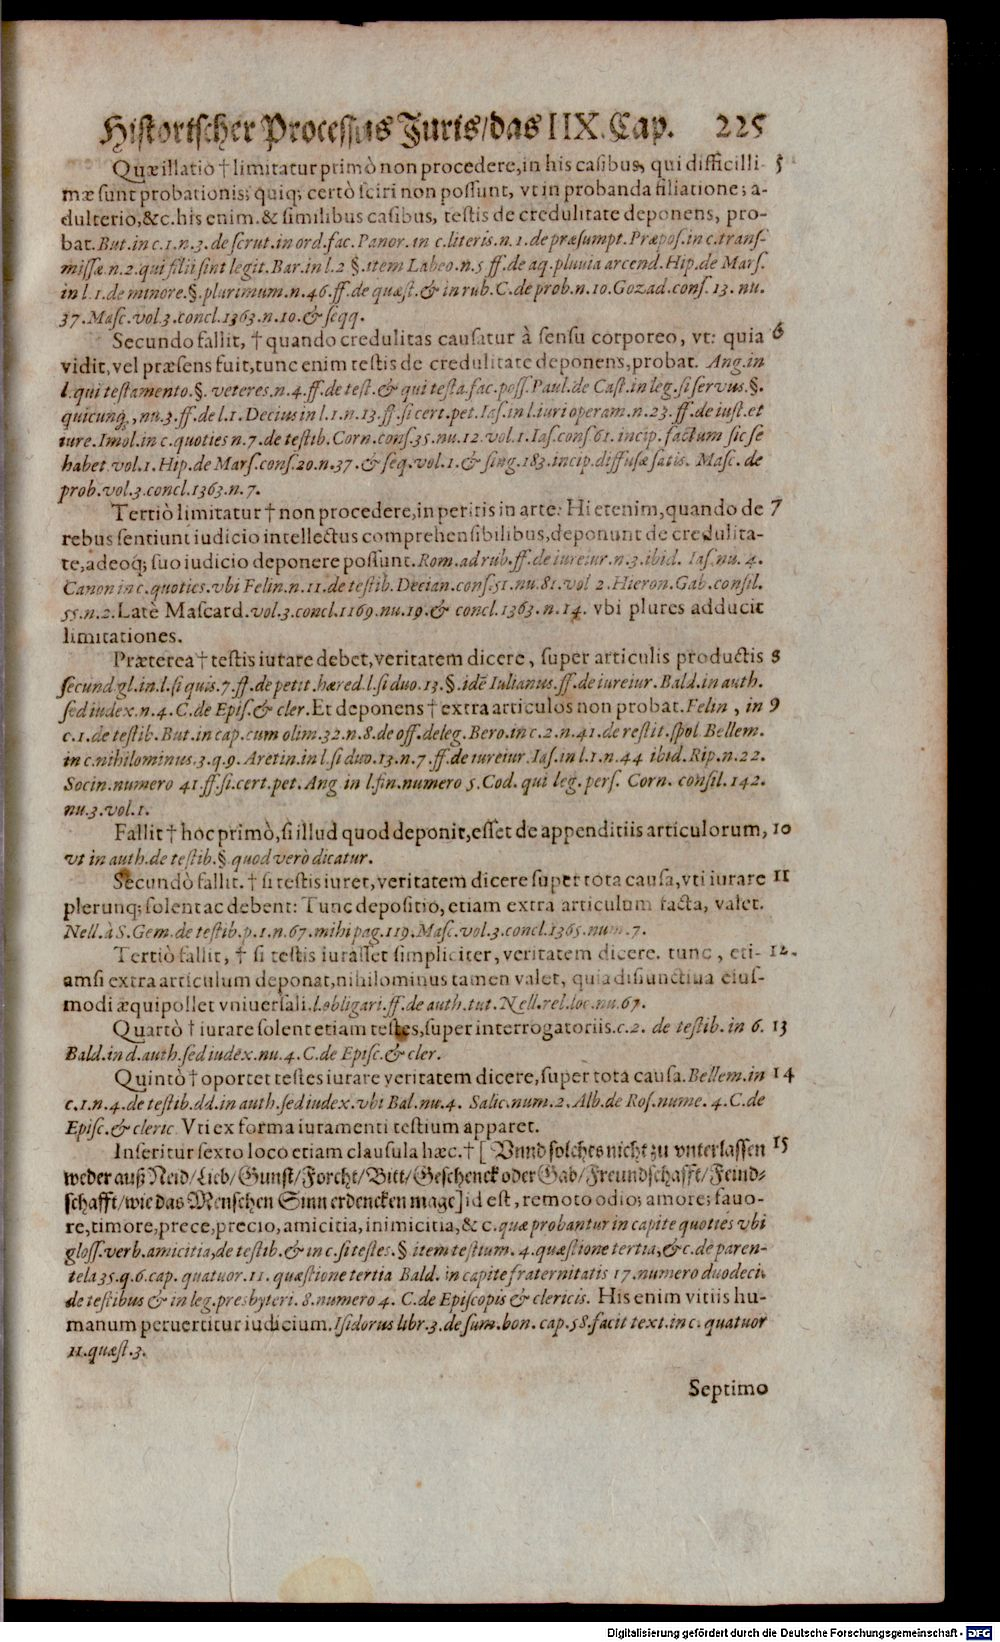 Historischer Processus Juris/das IIX. Cap. 225
Quæ illatio † limitatur primò non procedere, in his casibus, qui difficilli- 5
mæ sunt probationis; quiq; certò sciri non possunt, vt in probanda filiatione; a-
dulterio, &c. his enim. & similibus casibus, testis de credulitate deponens, pro-
bat. But. in c. 1. n. 3. de scrut. in ord. fac. Panor. in c. literis. n. 1. de præsumpt. Præpos. in c. trans-
missæ. n. 2. qui filii sint legit. Bar. in l. 2 §. item Labeo. n. 5 ff. de aq. pluvia arcend. Hip. de Mars.
in l. 1. de minore. §. plurimum. n. 46. ff. de quæst. & in rub. C. de prob. n. 10. Gozad. cons. 13. nu.
37. Masc. vol. 3. concl. 1363. n. 10. & seqq.
Secundo fallit, † quando credulitas causatur à sensu corporeo, vt: quia 6
vidit, vel præsens fuit, tunc enim testis de credulitate deponens, probat. Ang. in
l. qui testamento. §. veteres. n. 4. ff. de test. & qui testa. fac. poss. Paul. de Cast. in leg. si servus. §.
quicunq;, nu. 3. ff. de l. 1. Decius in l. 1. n. 13. ff. si cert. pet. Ias. in l. iuri operam. n. 23. ff. de iust. et
iure. Imol. in c. quoties n. 7. de testib. Corn. cons. 35. nu. 12. vol. 1. Ias. cons. 61. incip. factum sic se
habet. vol. 1. Hip. de Mars. cons. 20. n. 37. & seq. vol. 1. & sing. 183. incip. diffusæ satis. Masc. de
prob. vol. 3. concl. 1363. n. 7.
Tertiò limitatur † non procedere, in peritis in arte: Hi etenim, quando de 7
rebus sentiunt iudicio intellectus comprehensibilibus, deponunt de credulita-
te, adeoq; suo iudicio deponere possunt. Rom. ad rub. ff. de iureiur. n. 3. ibid. Ias. nu. 4.
Canon in c. quoties. vbi Felin. n. 11. de testib. Decian. cons. 51. nu. 81. vol 2. Hieron. Gab. consil.
55. n. 2. Latè Mascard. vol. 3. concl. 1169. nu. 19. & concl. 1363. n. 14. vbi plures adducit
limitationes.
Præterea † testis iurare debet, veritatem dicere, super articulis productis 8
secund. gl. in. l. si quis. 7. ff. de petit. hæred. l. si duo. 13. §. idē Iulianus. ff. de iureiur. Bald. in auth.
sed iudex. n. 4. C. de Epis. & cler. Et deponens † extra articulos non probat. Felin, in 9
c. 1. de testib. But. in cap. cum olim. 32. n. 8. de off. deleg. Bero. in c. 2. n. 41. de restit. spol. Bellem.
in c. nihilominus. 3. q. 9. Aretin. in l. si duo. 13. n. 7. ff. de iureiur. Ias. in l. 1. n. 44 ibid. Rip. n. 22.
Socin. numero 41. ff. si. cert. pet. Ang. in l. fin. numero 5. Cod. qui leg. pers. Corn. consil. 142.
nu. 3. vol. 1.
Fallit † hoc primò, si illud quod deponit, esset de appenditiis articulorum, 10
vt in auth. de testib. §. quod verò dicatur.
Secundò fallit. † si testis iuret, veritatem dicere super tota causa, vti iurare 11
plerunq; solent ac debent: Tunc depositio, etiam extra articulum facta, valet.
Nell. à S. Gem. de testib. p. 1. n. 67. mihi pag. 119. Masc. vol. 3. concl. 1365. num. 7.
Tertiò fallit, † si testis iurasset simpliciter, veritatem dicere. tunc, eti- 12.
amsi extra articulum deponat, nihilominus tamen valet, quia disiunctiua eius-
modi æquipollet vniuersali. l. obligari. ff. de auth. tut. Nell. rel. loc. nu. 67.
Quartò † iurare solent etiam testes, super interrogatoriis. c. 2. de testib. in 6. 13
Bald. in d. auth. sed iudex. nu. 4. C. de Episc. & cler.
Quintò † oportet testes iurare veritatem dicere, super tota causa. Bellem. in 14
c. 1. n. 4. de testib. dd. in auth. sed iudex. vbi Bal. nu. 4. Salic. num. 2. Alb. de Ros. nume. 4. C. de
Episc. & cleric. Vti ex forma iuramenti testium apparet.
Inseritur sexto loco etiam clausula hæc. † [ Vnnd solches nicht zu vnterlassen 15
weder auß Neid/Lieb/Gunst/Forcht/Bitt/Geschenck oder Gab/Freundschafft/Feind-
schafft/wie das Menschen Sinn erdencken mage] id est, remoto odio; amore; fauo-
re, timore, prece, precio, amicitia, inimicitia, &c. quæ probantur in capite quoties vbi
gloss. verb. amicitia, de testib. & in c. si testes. § item testium. 4. quæstione tertia, & c. de paren-
tela 35. q. 6. cap. quatuor. 11. quæstione tertia Bald. in capite fraternitatis 17. numero duodeci.
de testibus & in leg. presbyteri. 8. numero 4. C. de Episcopis & clericis. His enim vitiis hu-
manum peruertitur iudicium. Isidorus libr. 3. de sum. bon. cap. 58. facit text. in c. quatuor
11. quæst. 3.
Septimo
Digitalisierung gefördert durch die Deutsche Forschungsgemeinschaft - DFG